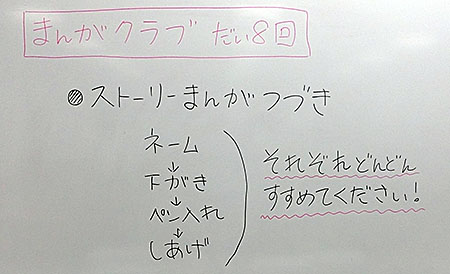 まんがクラブ だい8回
◎ストーリーまんがつづき
ネーム
↓
下がき
↓
ペン入れ
↓
しあげ
それぞれどんどん
すすめてください!